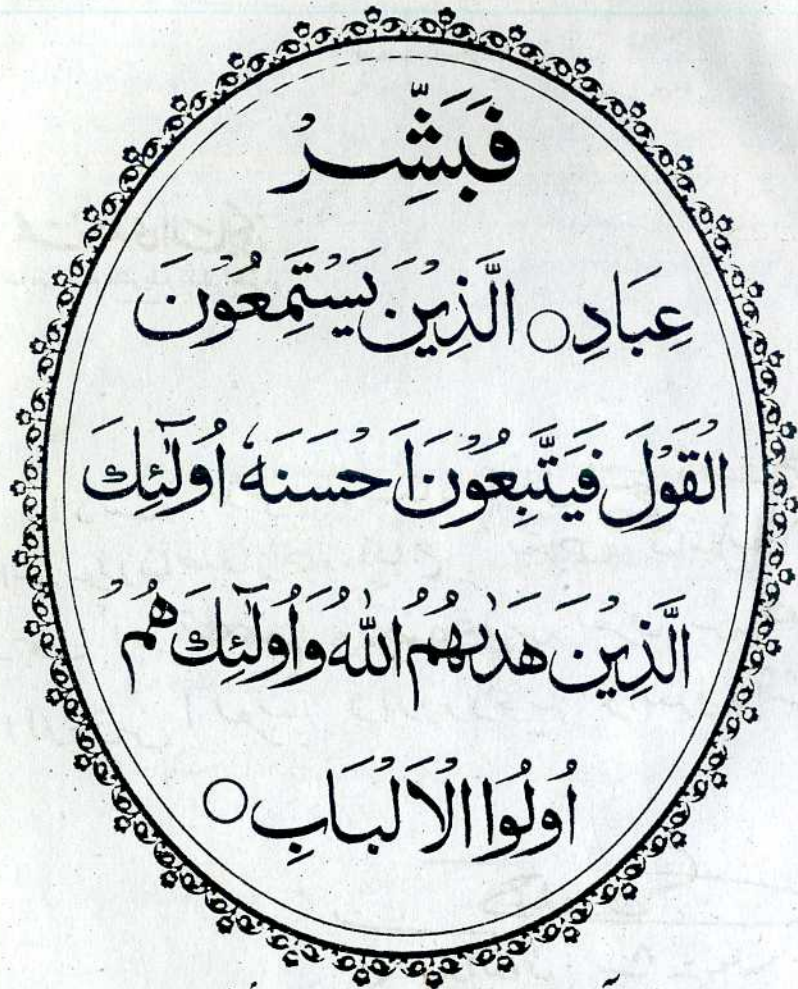 فَبَشِّرْ
عِبَادِ ○ الَّذِيْنَ يَسْتَمِعُوْنَ
الْقَوْلَ فَيَتَّبِعُوْنَ اَحْسَنَهٗ اُولٰٓئِكَ
الَّذِيْنَ هَدٰىهُمُ اللّٰهُ وَاُولٰٓئِكَ هُمْ
اُولُوا الْاَلْبَابِ ○